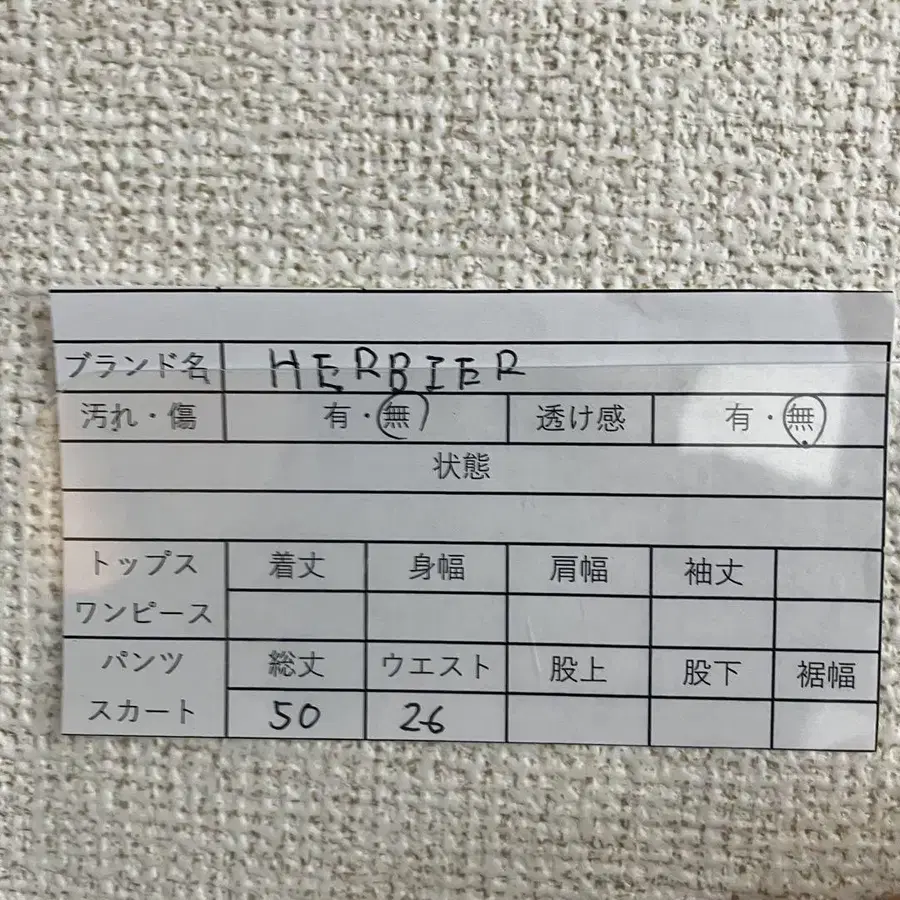 ブランド名 HERBIER
汚れ・傷 有・無 透け感 有・無
状態
トップス 着丈 身幅 肩幅 袖丈
ワンピース
パンツ 総丈 ウエスト 股上 股下 裾幅
スカート 50 26